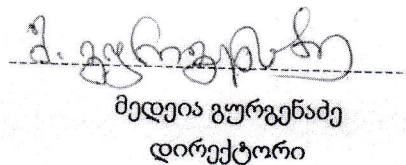 მ. გურგენაძე
მედეია გურგენაძე
დირექტორი